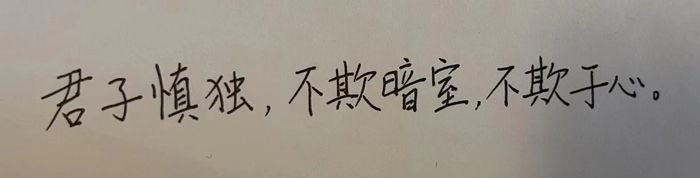 君子慎独,不欺暗室,不欺于心。